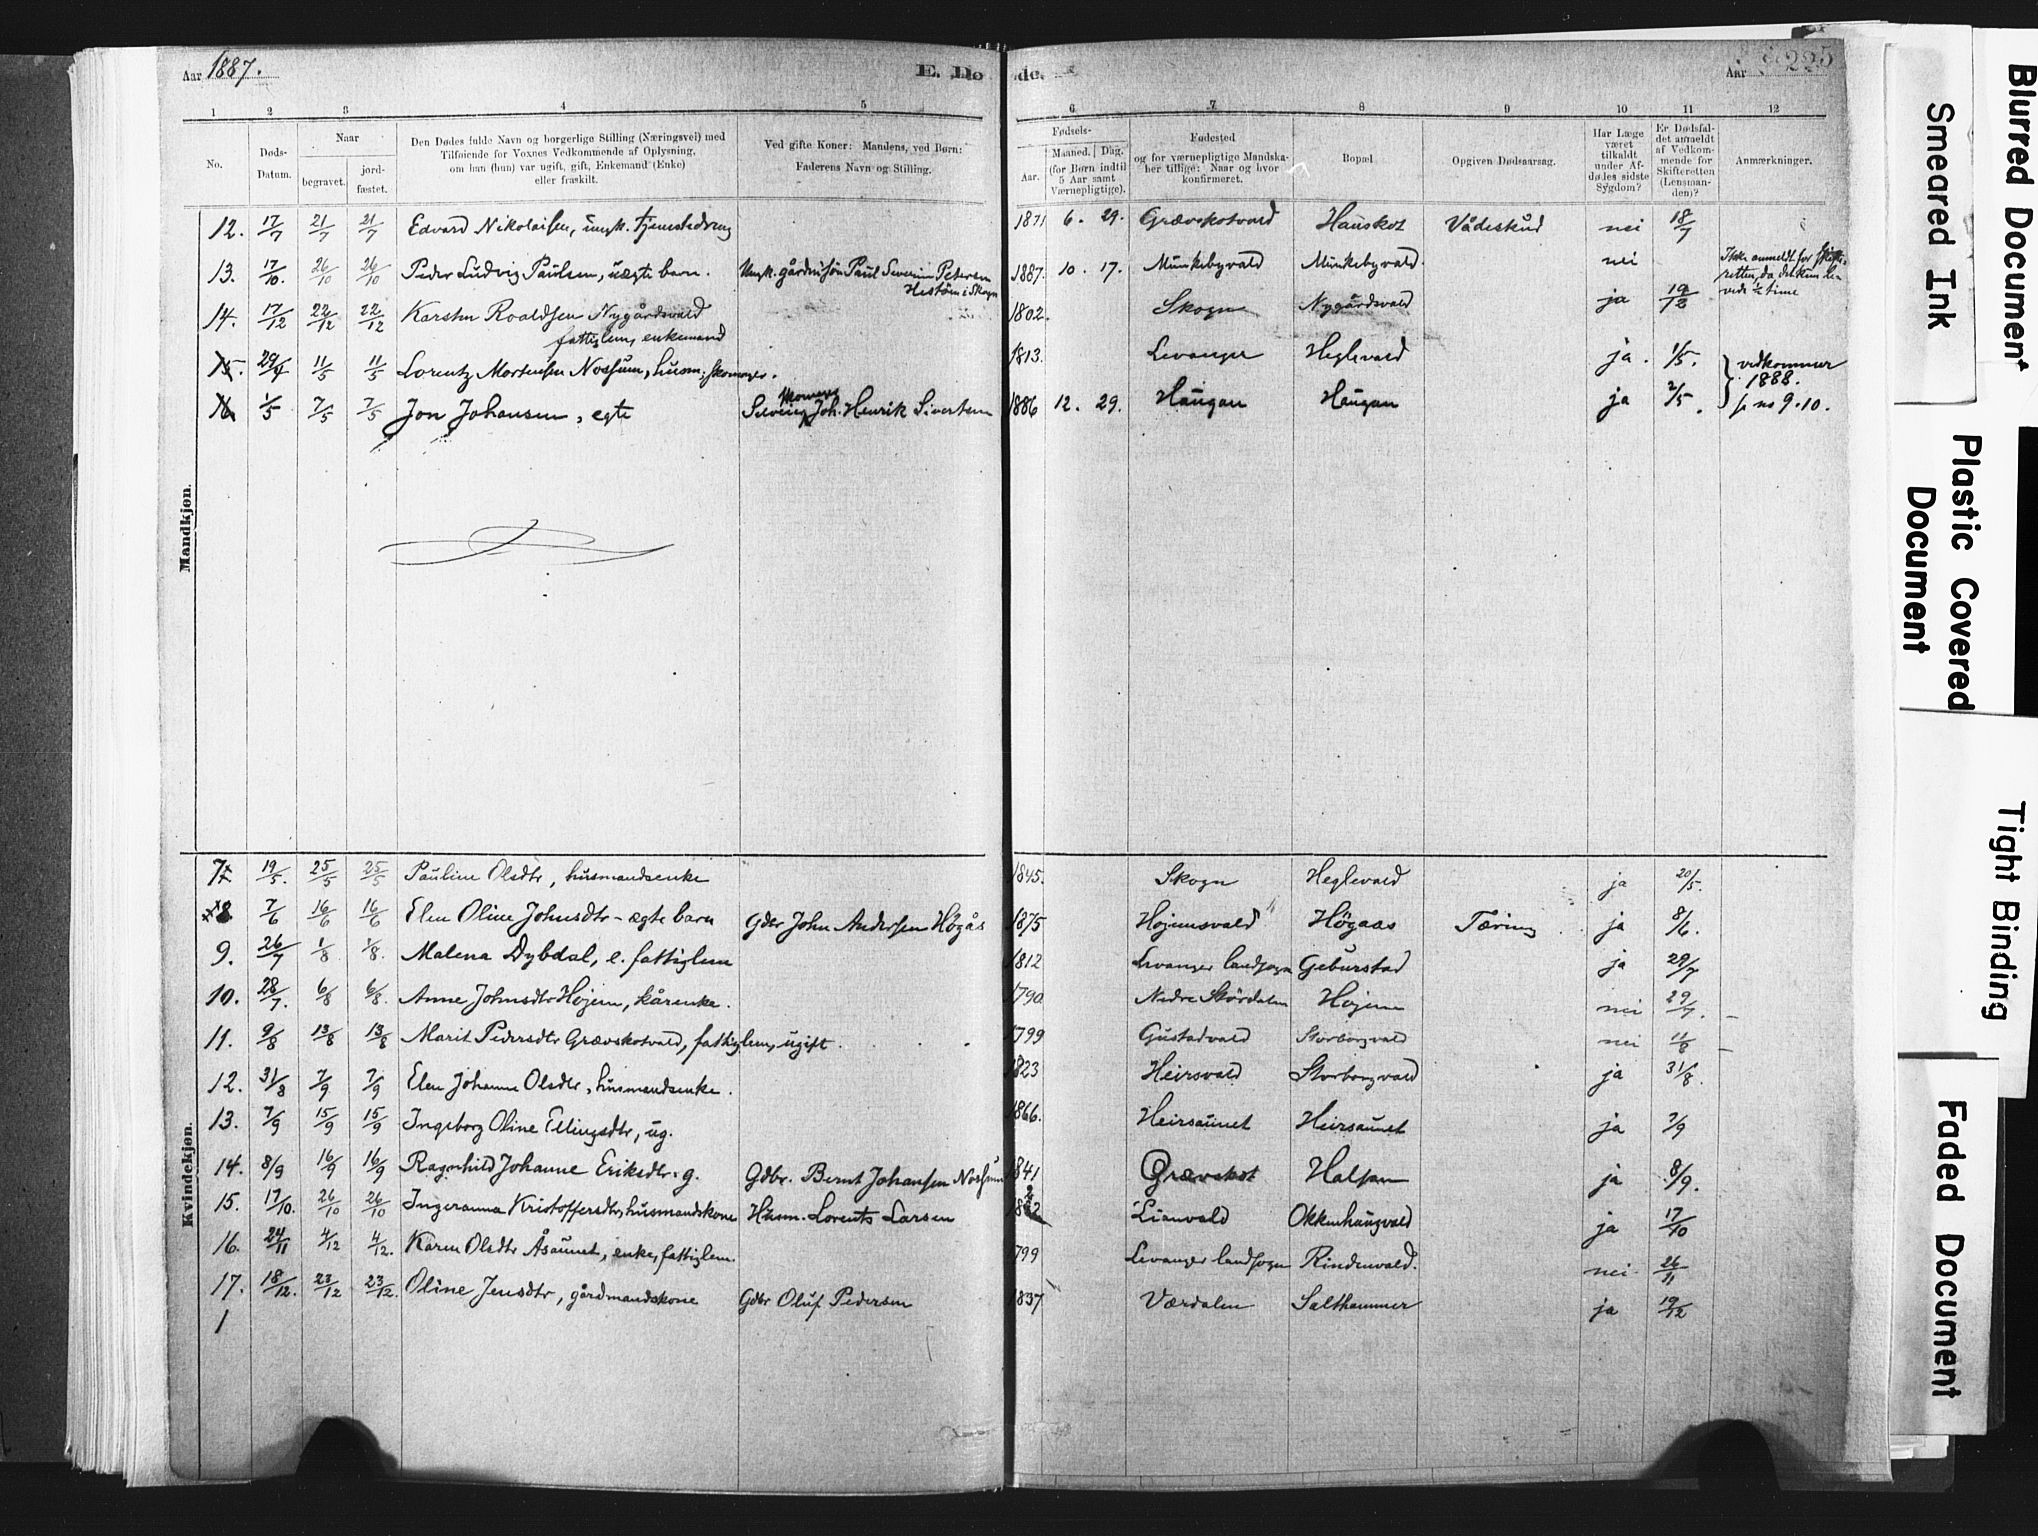 Aar 1887.
E. Dø
de.
Aar 225
1 2 3 4 5 6 7 8 9 10 11 12
No.
Døds-Datum.
Naar
begravet.
jord-fæstet.
Den Dødes fulde Navn og borgerlige Stilling (Næringsvei) med
Tilføiende for Voxnes Vedkommende af Oplysning,
om han (hun) var ugift, gift, Enkemand (Enke)
eller fraskilt.
Ved gifte Koner: Mandens, ved Børn:
Faderens Navn og Stilling.
Fødsels-
Aar.
Maaned. Dag.
(for Børn indtil
5 Aar samt
Værnepligtige).
Fødested
og for værnepligtige Mandska-
ber tillige: Naar og hvor
konfirmeret.
Bopæl.
Opgiven Dødsaarsag.
Har Læge
været
tilkaldt
under Af-
dødes sidste
Sygdom?
Er Dødsfal-
det anmeldt
af Vedkom-
mende for
Skifteretten
(Lensman-
den)?
Anmærkninger.
Mandkjøn.
12. 17/7 21/7 21/7 Edvard Nikolaisen, ungk. tjenestedreng 1871 6. 29. Grævskotvald Hauskot Vådeskud nei 18/7
13. 17/10. 26/10 26/10 Peder Ludvig Paulsen, uægte barn. Ungk. gårdmisøn Paul Severin Petersen 1887. 10. 17. Munkebyvald Munkebyvald. nei Ikke anmeldt for skifte-
Hestøen i Skogn
retten, da det kun le-
vede ½ time
14. 17/12 22/12 22/12 Karsten Roaldsen Nygårdsvald 1802. Skogn Nygårdsvald ja 19/12
fattiglem, enkemand
15. 29/4 11/5 11/5 Lorentz Mortensen Nossum, husm; skomager. 1813. Levanger Heglevald ja. 1/5. vedkommer
1888.
16 1/5 7/5 7/5 Jon Johansen, egte Joh. Henrik Sivertsen 1886 12. 29. Haugan Haugan ja 2/5. no 9.10.
Kvindekjøn.
7 19/5. 25/5 25/5 Pauline Olsdtr, husmandsenke 1845. Skogn Heglevald ja 20/5.
8 7/6 16/6 16/6 Elen Oline Johnsdtr - ægte barn Gdbr John Andersen Høgås 1875 Hojemsvald Högaas Tæring ja 8/6.
9. 26/7 1/8 1/8. Malena Dybdal, e. fattiglem 1812 Levanger landsogn Geburstad ja 29/7
10. 28/7. 6/8 6/8. Anne Johnsdtr Hojem, kårenke. 1790. Nedre Stördalen Hojem nei 29/7. -
11. 9/8 13/8 13/8 Marit Pedersdtr Grævskotvald, fattiglem, ugift. 1799 Gustadvald Storborgvald nei 11/8 -
12. 31/8 7/9 7/9 Elen Johanna Olsdtr, husmandsenke. 1823 Heirsvald Storborgvald ja 31/8.
13. 7/9 15/9 15/9 Ingeborg Oline Ellingsdtr, ug. 1866. Heirsaunet Heirsaunet ja 7/9
14. 8/9 16/9 16/9 Ragnhild Johanne Eriksdtr. g. Gdbr. Bernt Johansen Nossum 1841 Grævskot Halsan ja 8/9.
15. 17/10. 26/10 26/10 Ingeranna Kristoffersdtr, husmandskone Husm. Lorents Larsen Lianvald Okkenhaugvald ja 17/10
16. 24/11 4/12 4/12. Karen Olsdtr Åsaunet, enke, fattiglem. 1799 Levanger landsogn Rindenvald. nei 26/11
17. 18/12. 23/12 23/12. Oline Jensdtr, gårdmandskone Gdbr Oluf Pedersen 1837 Værdalen Salthammer ja 19/12
1
Blurred Document
Smeared Ink
Plastic Covered
Document
Tight Binding
Faded Document